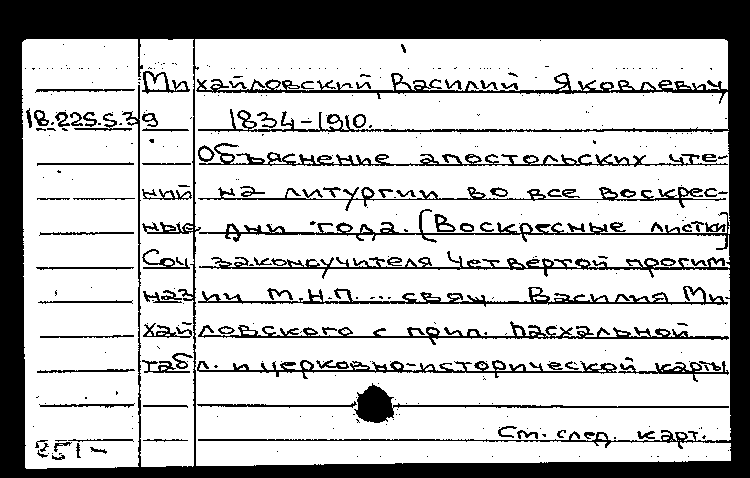 Михайловский, Василий Яковлевич
18.225.5.39 1834-1910.
Объяснение апостольских чте-
ний на литургии во все воскрес-
ные дни года. [Воскресные листки]
Соч. законоучителя Четвертой прогим-
назии М.Н.П. ... свящ. Василия Ми-
хайловского с прил. пасхальной
табл. и церковно-исторической карты
См. след. карт.
851-